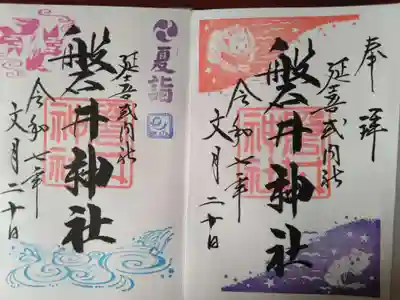 奉拝
延喜式内社
磐井神社
令和七年
文月二十日
夏詣
延喜式内社
磐井神社
令和七年
文月二十日